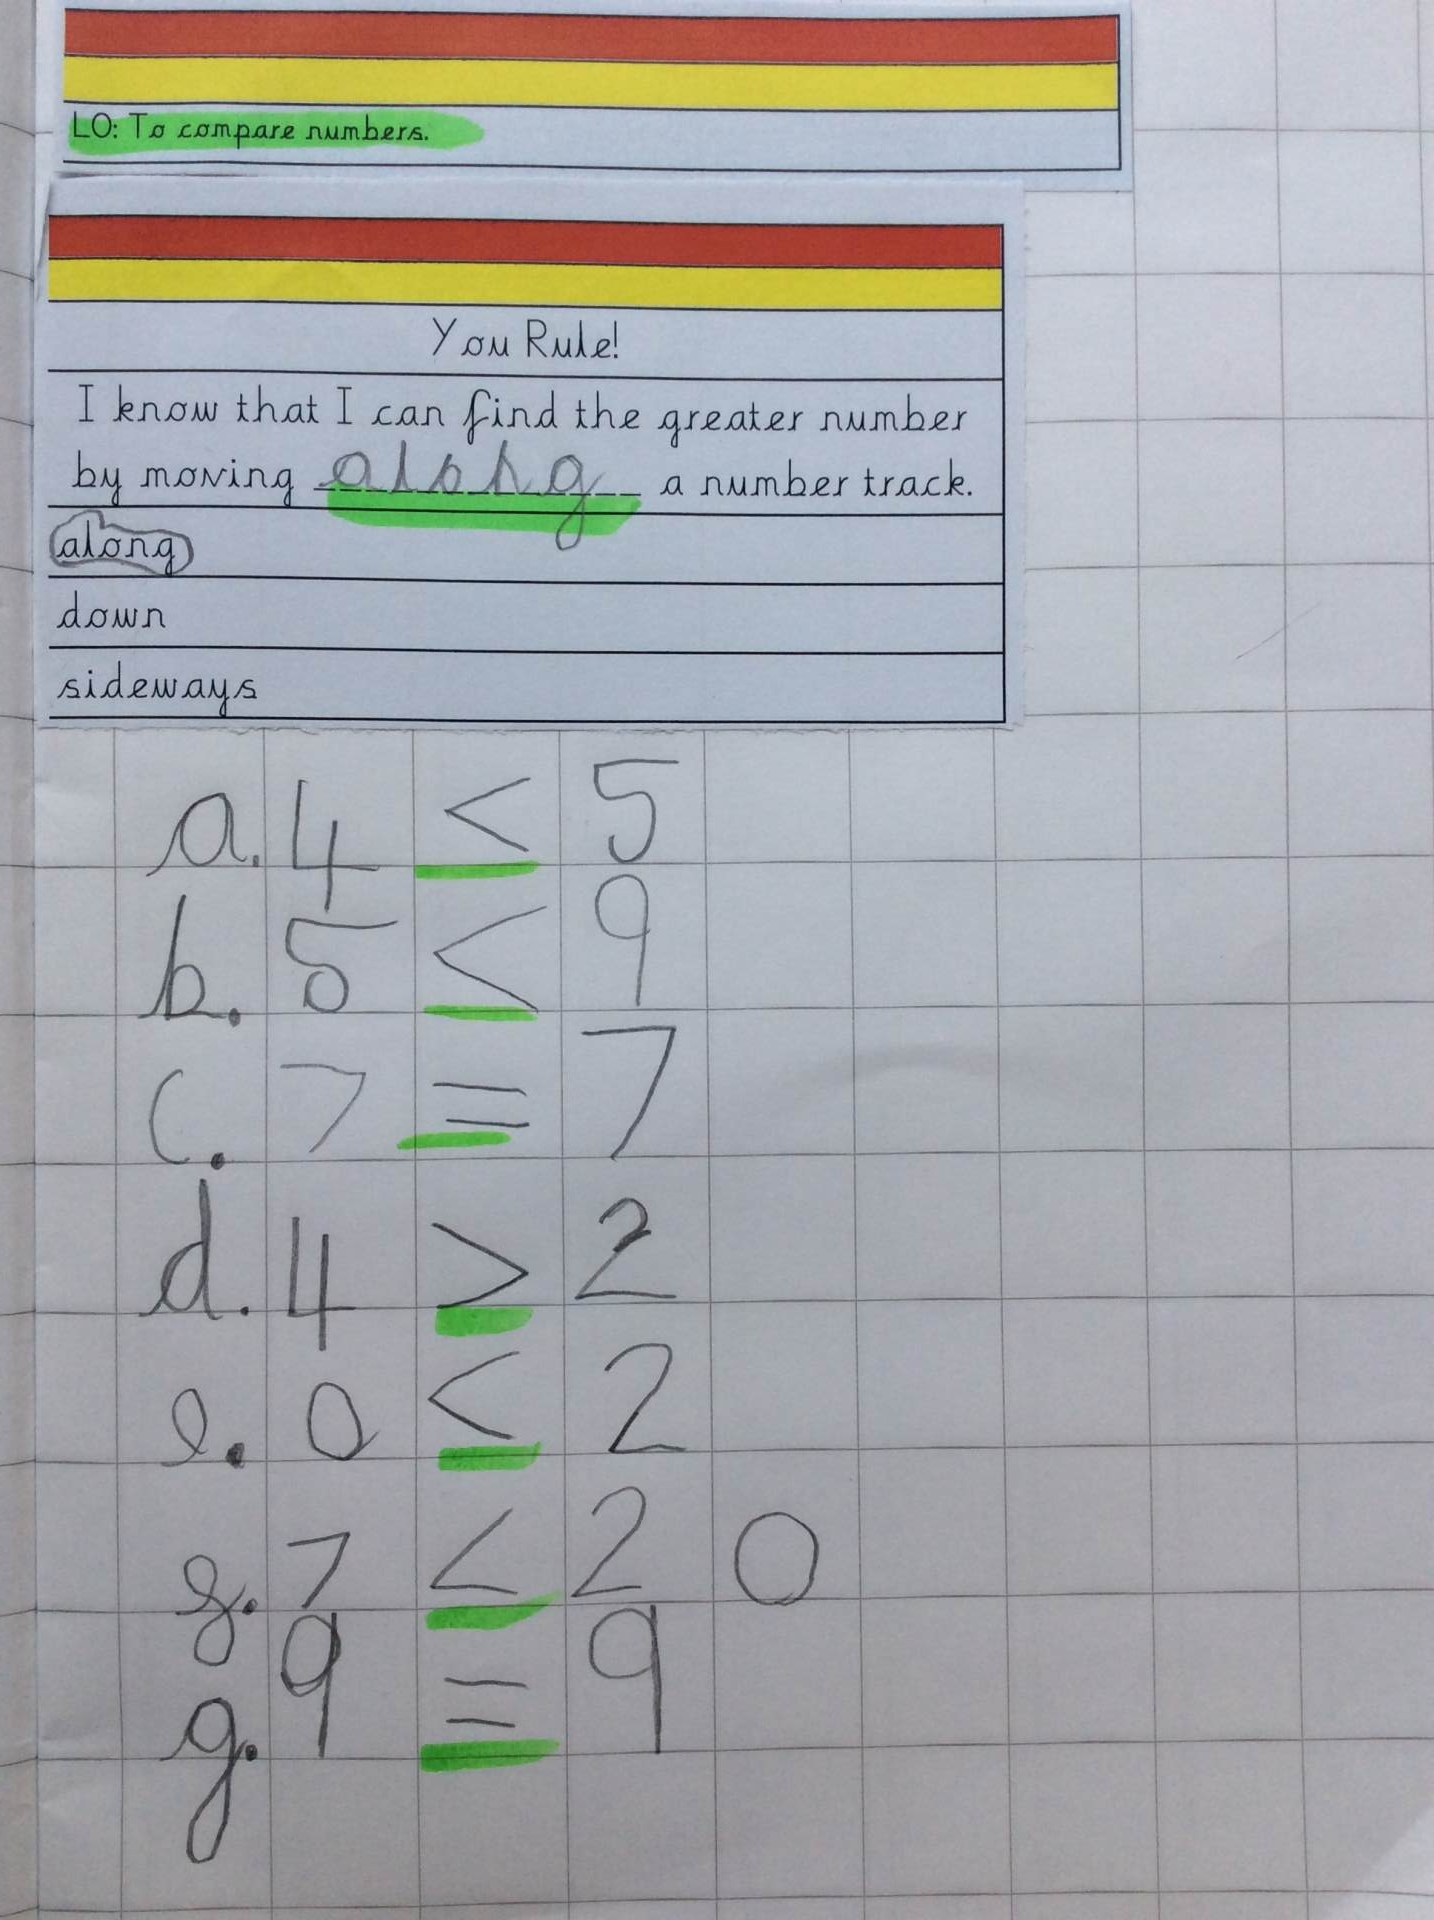 LO: To compare numbers.
You Rule!
I know that I can find the greater number
by moving along a number track.
along
down
sideways
a. 4 < 5
b. 5 < 9
c. 7 = 7
d. 4 > 2
e. 0 < 2
f. 7 < 20
g. 9 = 9